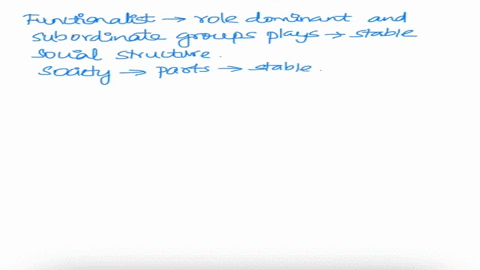 Functionalist → role dominant and
subordinate groups plays → stable
social structure.
Society → parts → stable.